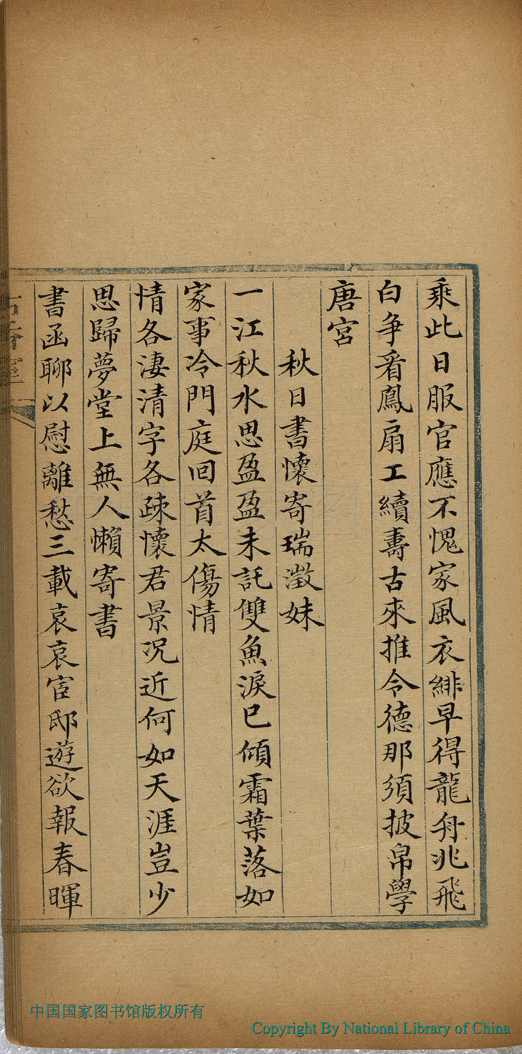 乘此日服官應不愧家風衣緋早得龍舟兆飛
白争看鳳扇工續壽古來推令德那須披帛學
唐宮
秋日書懷寄瑞澂妹
一江秋水思盈盈未託雙魚淚已傾霜葉落如
家事冷門庭回首太傷情
情各淒清字各疎懷君景況近何如天涯豈少
思歸夢堂上無人懶寄書
書函聊以慰離愁三載哀哀宦邸遊欲報春暉
中国国家图书馆版权所有
Copyright By National Library of China